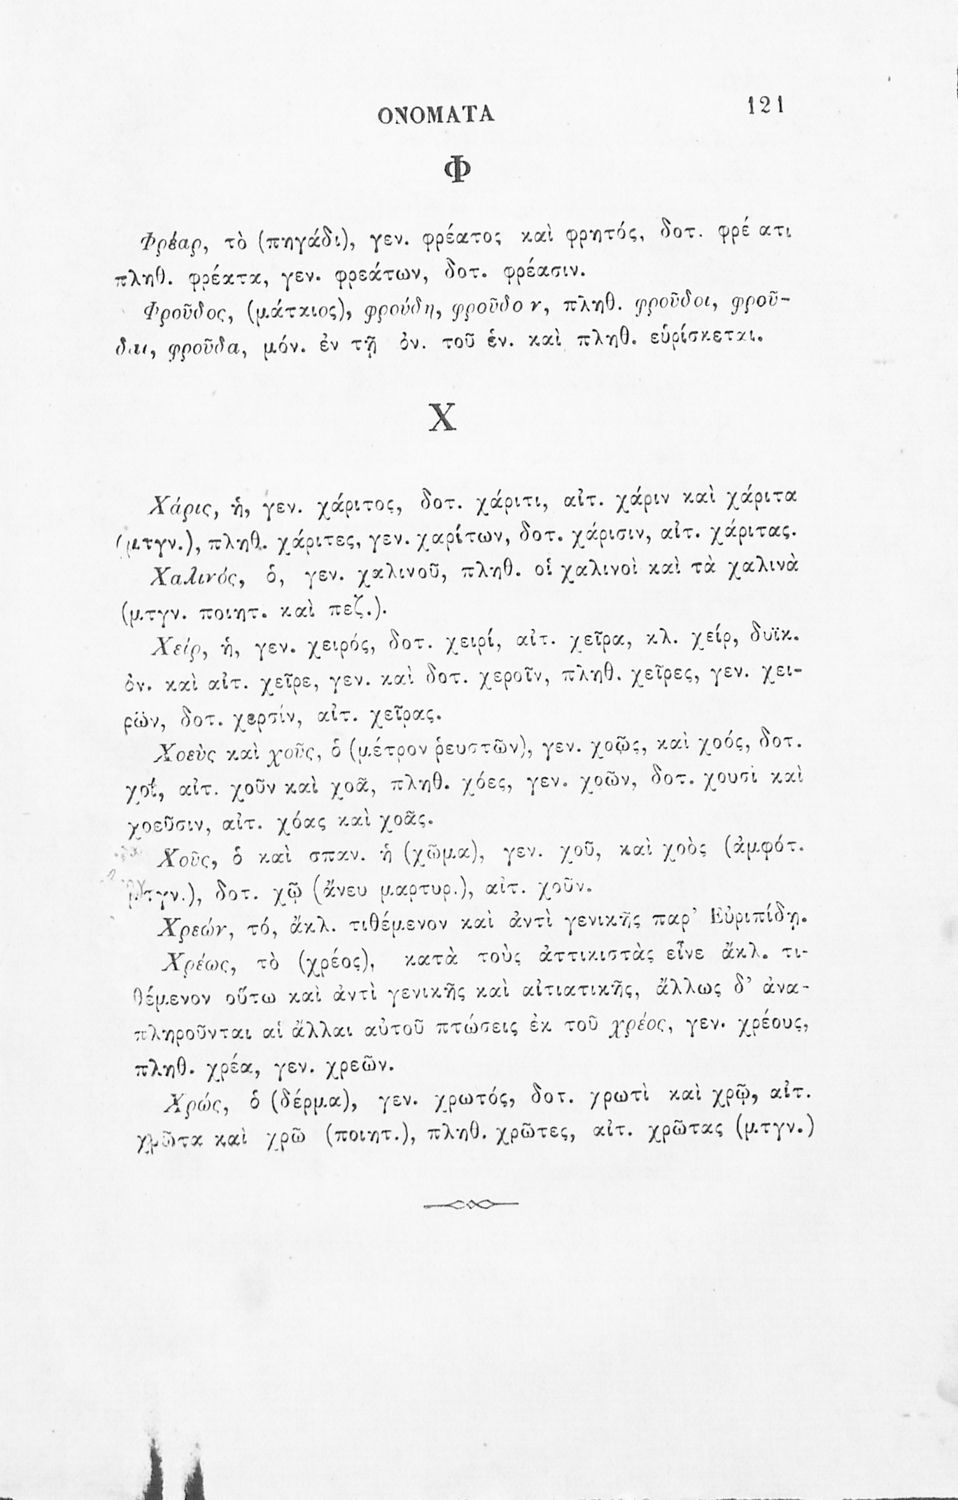 ΟΝΟΜΑΤΑ 121
Φ
Φρέαρ, τὸ (πηγάδι), γεν. φρέατος καὶ φρητός, δοτ. φρέ ατι
πληθ. φρέατα, γεν. φρεάτων, δοτ. φρέασιν.
Φροῦδος, (μάταιος), φρούδη, φροῦδο ν, πληθ. φροῦδοι, φροῦ-
δαι, φροῦδα, μόν. ἐν τῇ ὀν. τοῦ ἑν. καὶ πληθ. εὑρίσκεται.
Χ
Χάρις, ἡ, γεν. χάριτος, δοτ. χάριτι, αἰτ. χάριν καὶ χάριτα
(μτγν.), πληθ. χάριτες, γεν. χαρίτων, δοτ. χάρισιν, αἰτ. χάριτας.
Χαλινός, ὁ, γεν. χαλινοῦ, πληθ. οἱ χαλινοὶ καὶ τὰ χαλινὰ
(μτγν. ποιητ. καὶ πεζ.).
Χείρ, ἡ, γεν. χειρός, δοτ. χειρί, αἰτ. χεῖρα, κλ. χείρ, δυϊκ.
ὀν. καὶ αἰτ. χεῖρε, γεν. καὶ δοτ. χεροῖν, πληθ. χεῖρες, γεν. χει-
ρῶν, δοτ. χερσίν, αἰτ. χεῖρας.
Χοεὺς καὶ χοῦς, ὁ (μέτρον ῥευστῶν), γεν. χοῶς, καὶ χοός, δοτ.
χοΐ, αἰτ. χοῦν καὶ χοᾶ, πληθ. χόες, γεν. χοῶν, δοτ. χουσὶ καὶ
χοεῦσιν, αἰτ. χόας καὶ χοᾶς.
Χοῦς, ὁ καὶ σπαν. ἡ (χῶμα), γεν. χοῦ, καὶ χοὸς (ἀμφότ.
μτγν.), δοτ. χῷ (ἄνευ μαρτυρ.), αἰτ. χοῦν.
Χρεών, τό, ἄκλ. τιθέμενον καὶ ἀντὶ γενικῆς παρ' Εὐριπίδῃ.
Χρέως, τὸ (χρέος), κατὰ τοὺς ἀττικιστὰς εἶνε ἄκλ. τι-
θέμενον οὕτω καὶ ἀντὶ γενικῆς καὶ αἰτιατικῆς, ἄλλως δ' ἀνα-
πληροῦνται αἱ ἄλλαι αὐτοῦ πτώσεις ἐκ τοῦ χρέος, γεν. χρέους,
πληθ. χρέα, γεν. χρεῶν.
Χρώς, ὁ (δέρμα), γεν. χρωτός, δοτ. χρωτὶ καὶ χρῷ, αἰτ.
χρῶτα καὶ χρῶ (ποιητ.), πληθ. χρῶτες, αἰτ. χρῶτας (μτγν.)